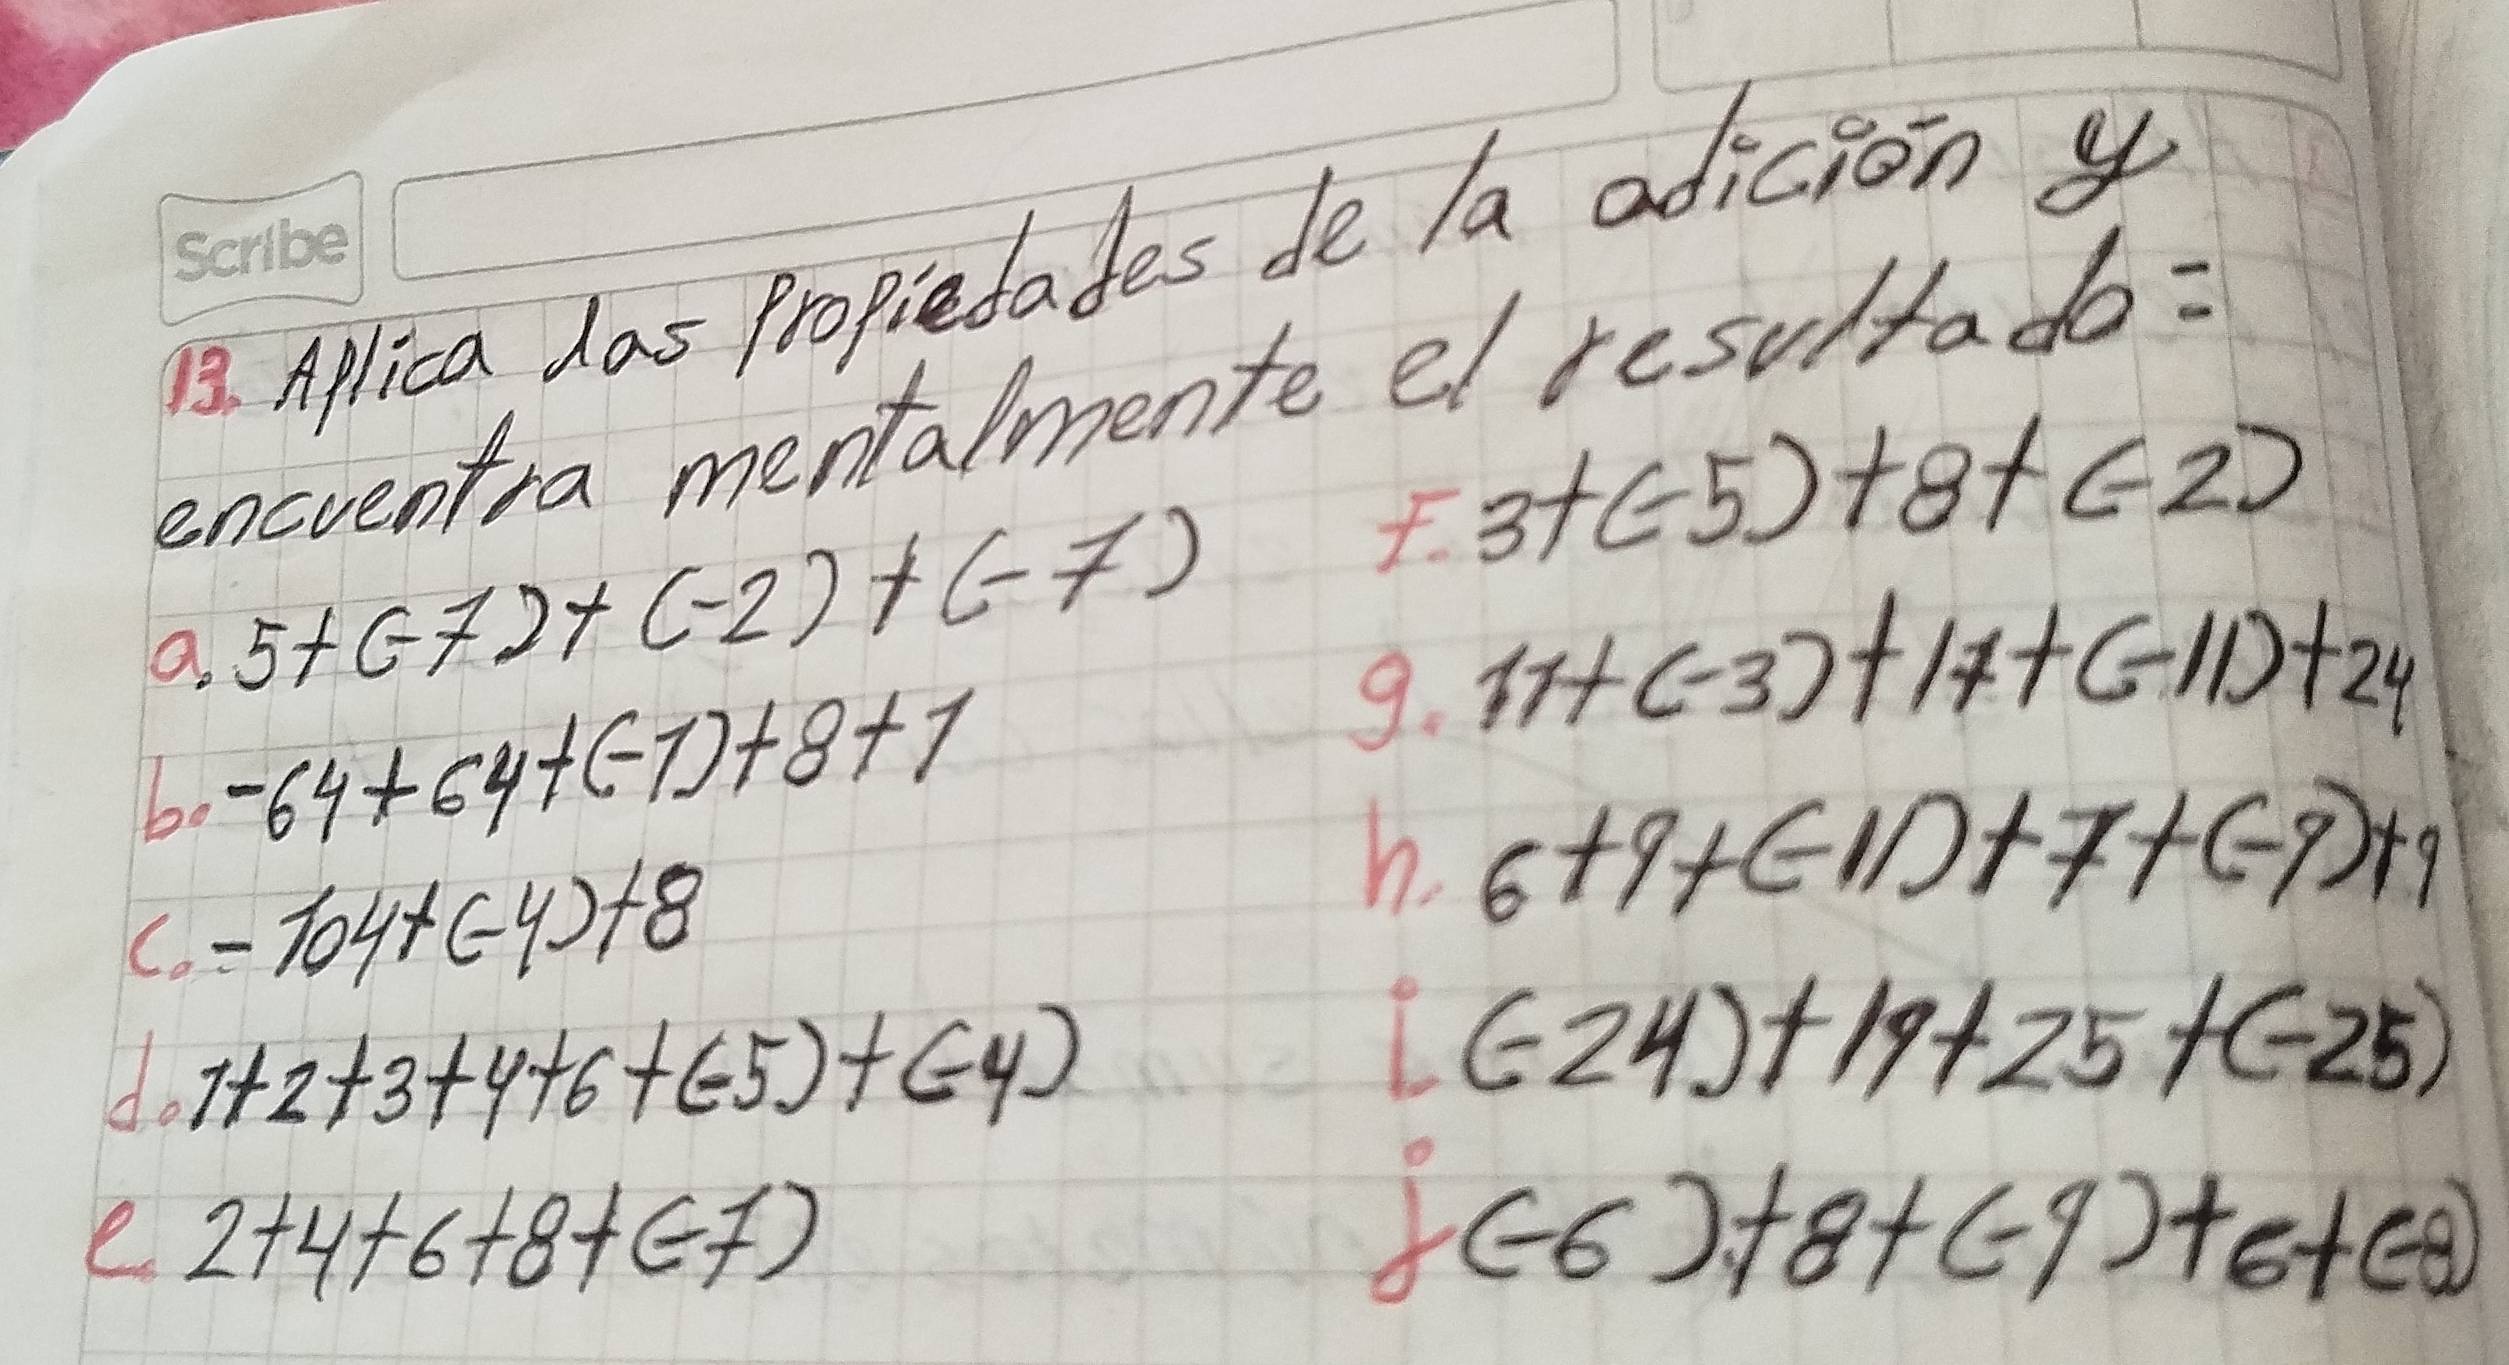 Scribe
13. Aplica las Propiedades de la adición y
encuentra mentalmente el resultado=
a. 5+(-7)+(-2)+(-7)
b. -64+64+(-1)+8+1
c. -104+(-4)+8
d. 1+2+3+4+6+(-5)+(-4)
e 2+4+6+8+(-7)
F. 3+(-5)+8+(-2)
g. 11+(-3)+17+(-11)+24
h. 6+9+(-11)+7+(-9)+9
i (-24)+19+25+(-25)
j (-6)+8+(-9)+6+(-8)